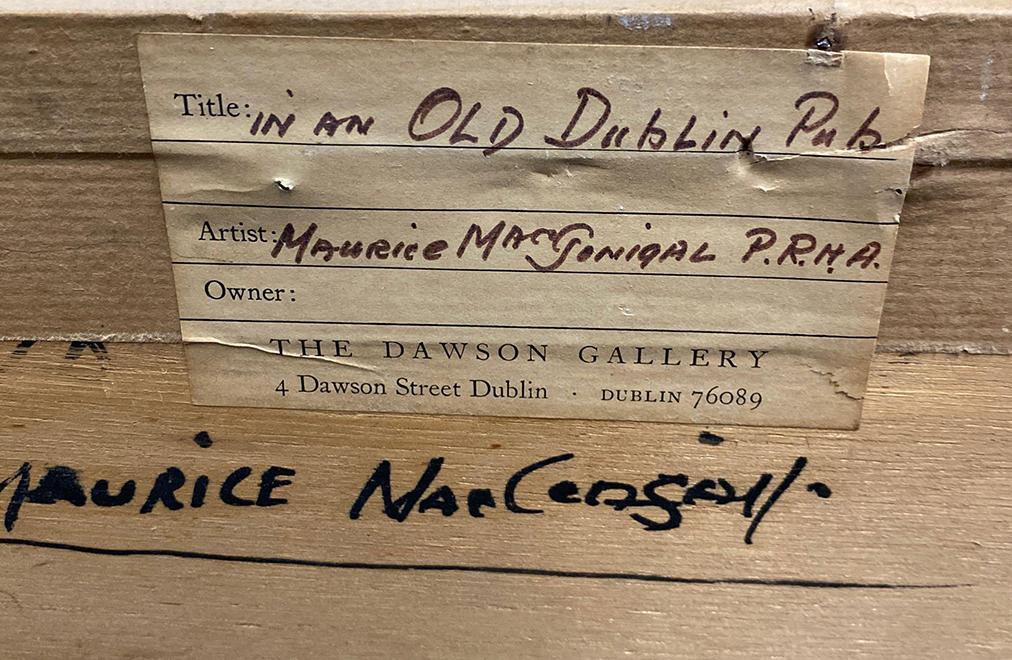 Title: IN AN OLD DUBLIN PUB
Artist: MAURICE MACGONIGAL P.R.H.A.
Owner:
THE DAWSON GALLERY
4 Dawson Street Dublin · DUBLIN 76089
MAURICE